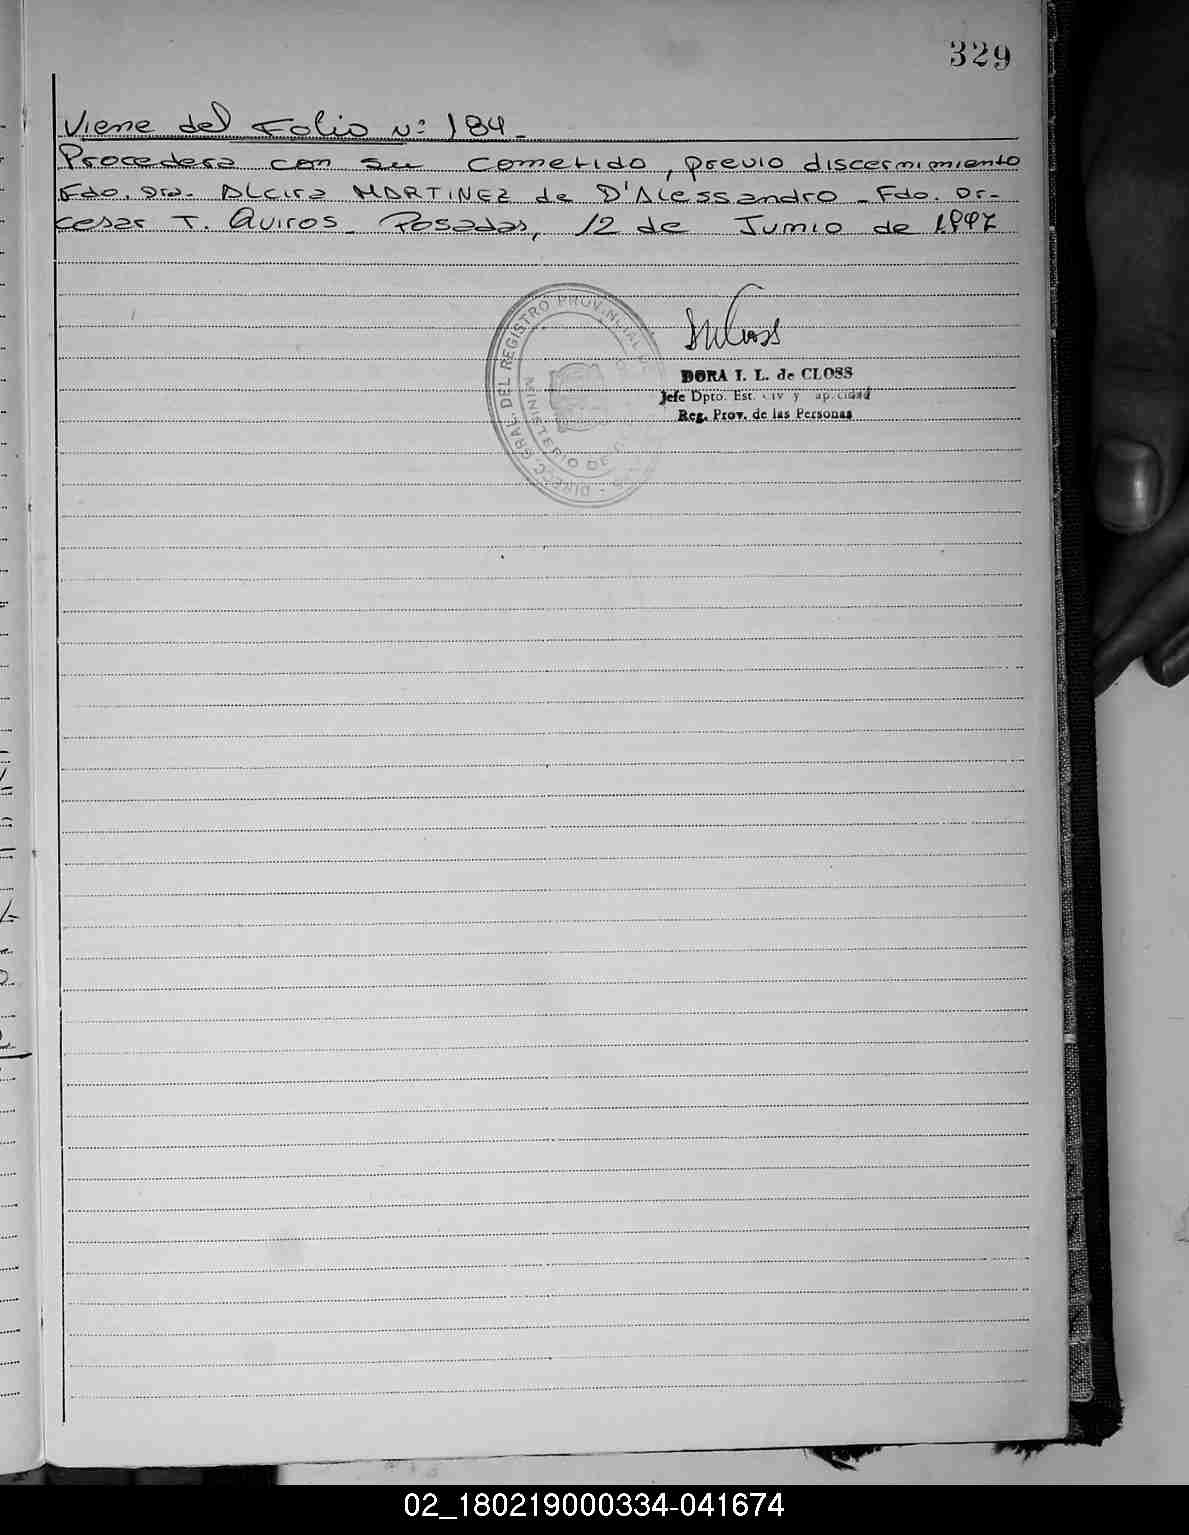 329
Viene del Folio Nº 184.-
Procedera con su cometido, previo discernimiento
Fdo. Dra. Alcira MARTINEZ de D'Alessandro - Fdo. Dr.
Cesar T. Quiros. Posadas, 12 de Junio de 1997
DIRECC. GRAL. DEL REGISTRO PROVINCIAL DE
MINISTERIO DE
DORA I. L. de CLOSS
Jefe Dpto. Est. Civ y
Reg. Prov. de las Personas
02_180219000334-041674